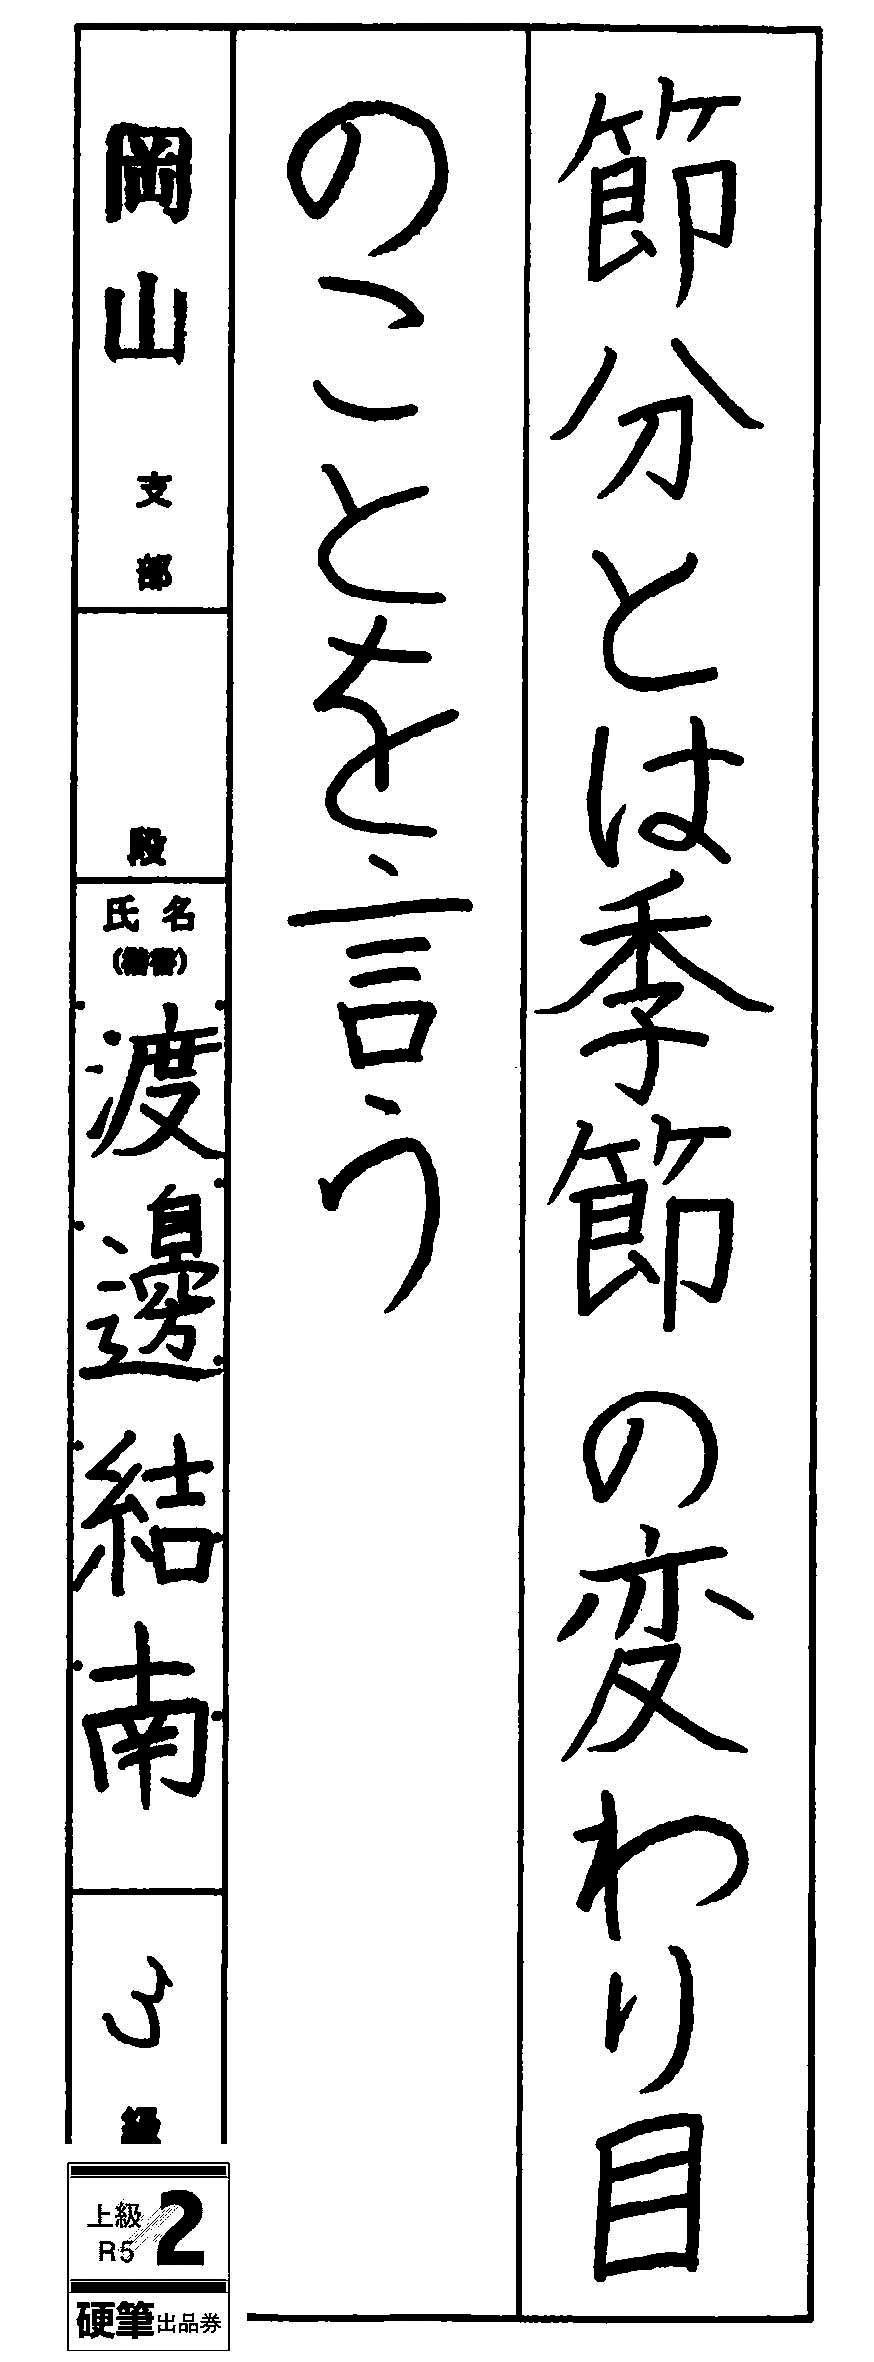 節分とは季節の変わり目
のことを言う
岡山支部
段
氏名
(楷書)
渡邊結南
3級
上級
R5
2
硬筆出品券